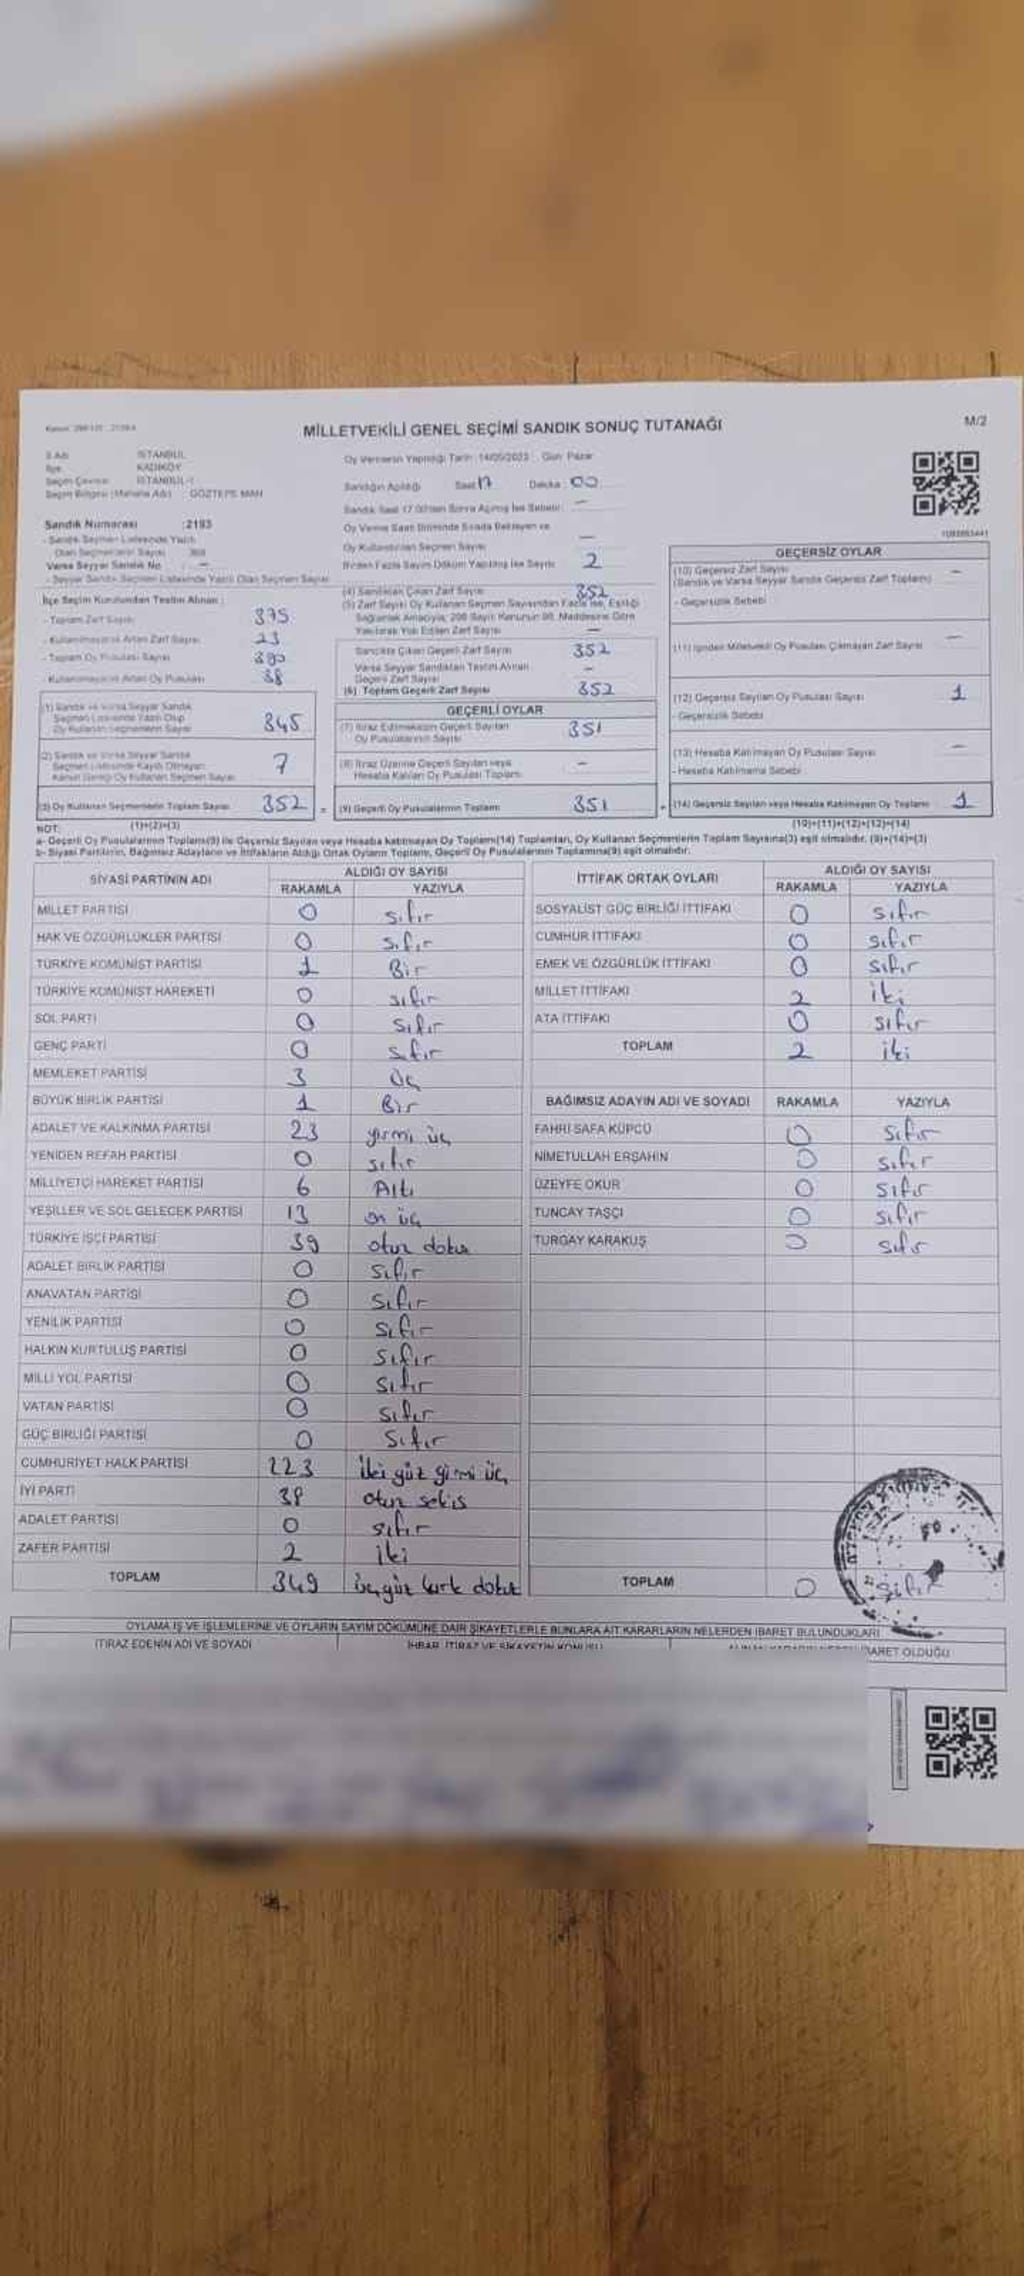 MİLLETVEKİLİ GENEL SEÇİMİ SANDIK SONUÇ TUTANAĞI
M/2
İl Adı İSTANBUL
İlçe KADIKÖY
Seçim Çevresi İSTANBUL-1
Seçim Bölgesi (Mahalle Adı) GÖZTEPE MAH
Oy Vermenin Yapıldığı Tarih 14/05/2023 Gün Pazar
Sandığın Açıldığı Saat 17 Dakika 00
Sandık Saat 17.00'den Sonra Açılmış İse Sebebi: —
Oy Verme Saati Bitiminde Sırada Bekleyen ve
Oy Kullandırılan Seçmen Sayısı —
Birden Fazla Sayım Döküm Yapılmış İse Sayısı 2
Sandık Numarası :2193
- Sandık Seçmen Listesinde Yazılı
Olan Seçmenlerin Sayısı
Varsa Seyyar Sandık No —
- Seyyar Sandık Seçmen Listesinde Yazılı Olan Seçmen Sayısı
İlçe Seçim Kurulundan Teslim Alınan :
- Toplam Zarf Sayısı 375
- Kullanılmayarak Artan Zarf Sayısı 23
- Toplam Oy Pusulası Sayısı 390
- Kullanılmayarak Artan Oy Pusulası 38
(1) Sandık ve Varsa Seyyar Sandık
Seçmen Listesinde Yazılı Olup
Oy Kullanan Seçmenlerin Sayısı 345
(2) Sandık ve Varsa Seyyar Sandık
Seçmen Listesinde Kayıtlı Olmayan
Kanun Gereği Oy Kullanan Seçmen Sayısı 7
(3) Oy Kullanan Seçmenlerin Toplam Sayısı 352
(1)+(2)=(3)
(4) Sandıktan Çıkan Zarf Sayısı 352
(5) Zarf Sayısı Oy Kullanan Seçmen Sayısından Fazla İse, Eşitliği
Sağlamak Amacıyla, 298 Sayılı Kanunun 98. Maddesine Göre
Yakılarak Yok Edilen Zarf Sayısı —
Sandıkta Çıkan Geçerli Zarf Sayısı 352
Varsa Seyyar Sandıktan Teslim Alınan
Geçerli Zarf Sayısı —
(6) Toplam Geçerli Zarf Sayısı 352
GEÇERLİ OYLAR
(7) İtiraz Edilmeksizin Geçerli Sayılan
Oy Pusulalarının Sayısı 351
(8) İtiraz Üzerine Geçerli Sayılan veya
Hesaba Katılan Oy Pusulası Toplamı —
(9) Geçerli Oy Pusulalarının Toplamı 351
GEÇERSİZ OYLAR
(10) Geçersiz Zarf Sayısı —
(Sandık ve Varsa Seyyar Sandık Geçersiz Zarf Toplamı)
- Geçersizlik Sebebi
(11) İçinden Milletvekili Oy Pusulası Çıkmayan Zarf Sayısı —
(12) Geçersiz Sayılan Oy Pusulası Sayısı 1
- Geçersizlik Sebebi
(13) Hesaba Katılmayan Oy Pusulası Sayısı —
- Hesaba Katılmama Sebebi
(14) Geçersiz Sayılan veya Hesaba Katılmayan Oy Toplamı 1
(10)+(11)+(12)+(13)=(14)
NOT:
a- Geçerli Oy Pusulalarının Toplamı(9) ile Geçersiz Sayılan veya Hesaba katılmayan Oy Toplamı(14) Toplamları, Oy Kullanan Seçmenlerin Toplam Sayısına(3) eşit olmalıdır. (9)+(14)=(3)
b- Siyasi Partilerin, Bağımsız Adayların ve İttifakların Aldığı Ortak Oyların Toplamı, Geçerli Oy Pusulalarının Toplamına(9) eşit olmalıdır.
SİYASİ PARTİNİN ADI ALDIĞI OY SAYISI
RAKAMLA YAZIYLA
MİLLET PARTİSİ 0 sıfır
HAK VE ÖZGÜRLÜKLER PARTİSİ 0 sıfır
TÜRKİYE KOMÜNİST PARTİSİ 1 Bir
TÜRKİYE KOMÜNİST HAREKETİ 0 sıfır
SOL PARTİ 0 sıfır
GENÇ PARTİ 0 sıfır
MEMLEKET PARTİSİ 3 üç
BÜYÜK BİRLİK PARTİSİ 1 Bir
ADALET VE KALKINMA PARTİSİ 23 yirmi üç
YENİDEN REFAH PARTİSİ 0 sıfır
MİLLİYETÇİ HAREKET PARTİSİ 6 Altı
YEŞİLLER VE SOL GELECEK PARTİSİ 13 on üç
TÜRKİYE İŞÇİ PARTİSİ 39 otuz dokuz
ADALET BİRLİK PARTİSİ 0 sıfır
ANAVATAN PARTİSİ 0 sıfır
YENİLİK PARTİSİ 0 sıfır
HALKIN KURTULUŞ PARTİSİ 0 sıfır
MİLLİ YOL PARTİSİ 0 sıfır
VATAN PARTİSİ 0 sıfır
GÜÇ BİRLİĞİ PARTİSİ 0 sıfır
CUMHURİYET HALK PARTİSİ 223 iki yüz yirmi üç
İYİ PARTİ 38 otuz sekiz
ADALET PARTİSİ 0 sıfır
ZAFER PARTİSİ 2 iki
TOPLAM 349 üç yüz kırk dokuz
İTTİFAK ORTAK OYLARI ALDIĞI OY SAYISI
RAKAMLA YAZIYLA
SOSYALİST GÜÇ BİRLİĞİ İTTİFAKI 0 sıfır
CUMHUR İTTİFAKI 0 sıfır
EMEK VE ÖZGÜRLÜK İTTİFAKI 0 sıfır
MİLLET İTTİFAKI 2 iki
ATA İTTİFAKI 0 sıfır
TOPLAM 2 iki
BAĞIMSIZ ADAYIN ADI VE SOYADI RAKAMLA YAZIYLA
FAHRİ SAFA KÜPCÜ 0 sıfır
NİMETULLAH ERŞAHİN 0 sıfır
ÜZEYFE OKUR 0 sıfır
TUNCAY TAŞÇI 0 sıfır
TURGAY KARAKUŞ 0 sıfır
TOPLAM 0 sıfır
OYLAMA İŞ VE İŞLEMLERİNE VE OYLARIN SAYIM DÖKÜMÜNE DAİR ŞİKAYETLERLE BUNLARA AİT KARARLARIN NELERDEN İBARET BULUNDUKLARI
İTİRAZ EDENİN ADI VE SOYADI
İHBAR, İTİRAZ VE ŞİKAYETİN KONUSU